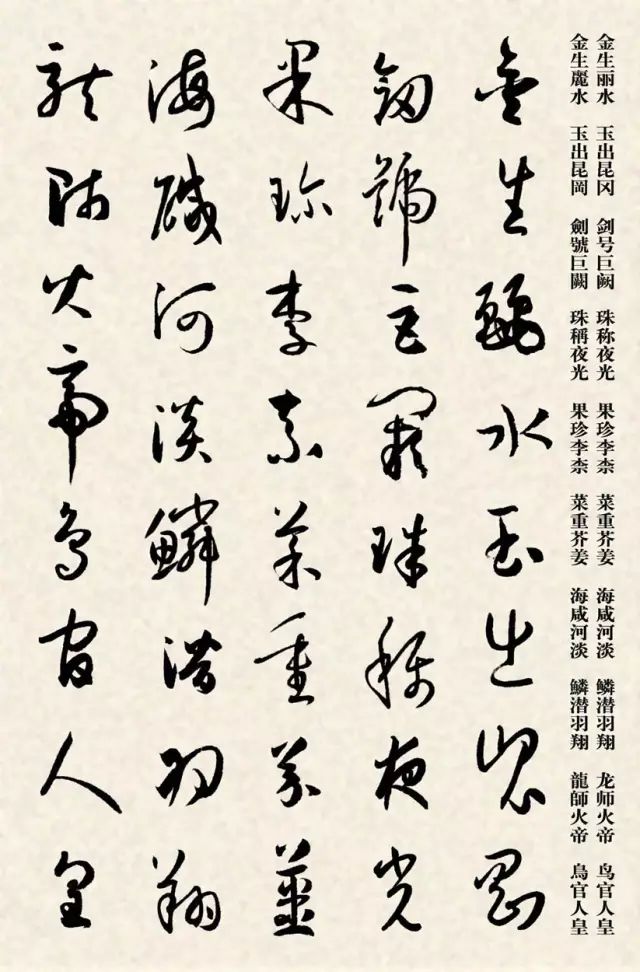 金生丽水 玉出昆冈 剑号巨阙 珠称夜光 果珍李柰 菜重芥姜 海咸河淡 鳞潜羽翔 龙师火帝 鸟官人皇
金生麗水 玉出昆岡 劍號巨闕 珠稱夜光 果珍李柰 菜重芥姜 海咸河淡 鱗潜羽翔 龍師火帝 鳥官人皇
金生麗水玉出崑岡
劒號巨闕珠稱夜光
果珍李柰菜重芥薑
海鹹河淡鱗潜羽翔
龍師火帝鳥官人皇